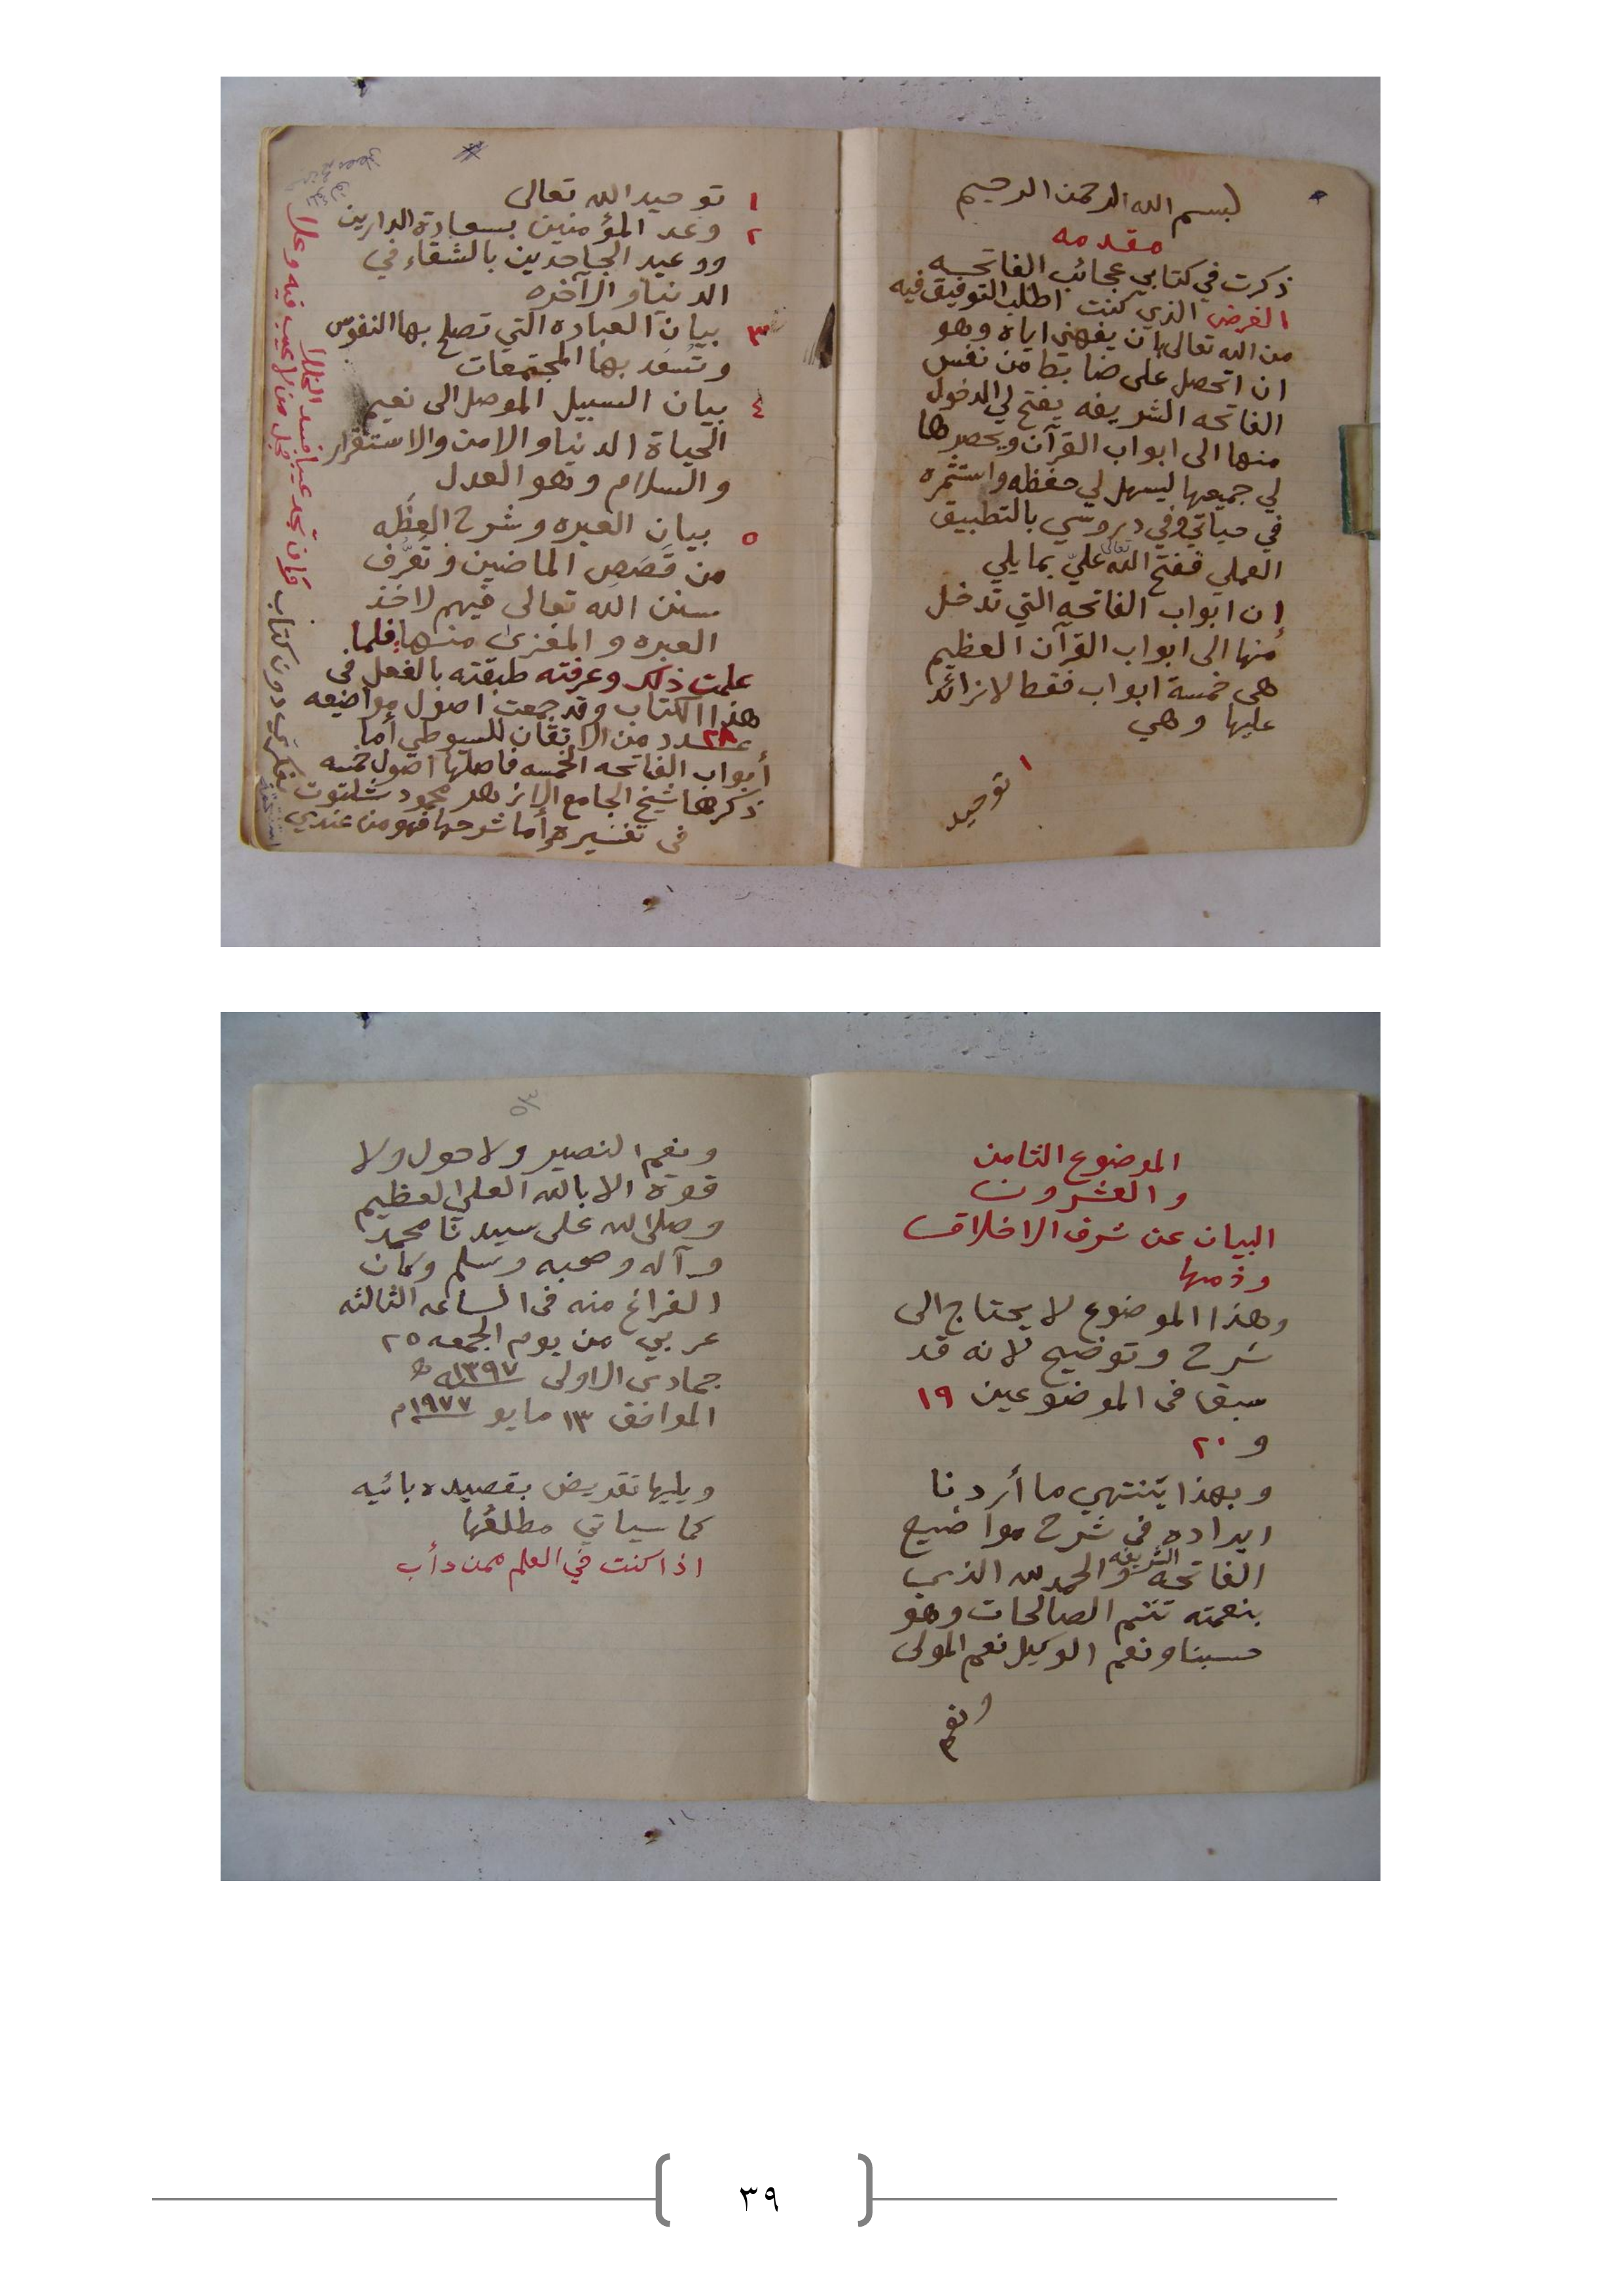 بسم الله الرحمن الرحيم
مقدمه
ذكرت في كتابي عجائب الفاتحه
الغرض الذي كنت اطلب التوفيق فيه
من الله تعالى بان يفهمني اياه وهو
ان اتحصل على ضابط من نفس
الفاتحه الشريفه يفتح لي الدخول
منها الى ابواب القرآن ويحصرها
لي جميعها ليسهل لي حفظه واستثمره
في حياتي وفي دروسي بالتطبيق
العملي ففتح الله تعالى عليّ بما يلي
إن ابواب الفاتحه التي تدخل
منها الى ابواب القرآن العظيم
هى خمسة ابواب فقط لا زائد
عليها وهي
١ توحيد
١ توحيد الله تعالى
٢ وعد المؤمنين بسعادة الدارين
ووعيد الجاحدين بالشقاء في
الدنيا والآخره
٣ بيان العباده التي تصلح بها النفوس
وتسعد بها المجتمعات
٤ بيان السبيل الموصل الى نعيم
الحياة الدنيا والامن والاستقرار
والسلام وهو العدل
٥ بيان العبره وشرح العظه
من قصص الماضين وتعرّف
سنن الله تعالى فيهم لاخذ
العبره والمغزى منها فلما
علمت ذلك وعرفته طبقته بالفعل فى
هذا الكتاب وقد جمعت اصول مواضيعه
عدد ٢٨ من الاتقان للسيوطي أما
أبواب الفاتحه الخمسه فاصلها اصول خمسه
ذكرها شيخ الجامع الازهر محمود شلتوت
فى تفسيره وأما شرحها فهو من عندي
بفكرتي دون كتاب
وإن تجد عيبا فسد الخللا
فجل من لا عيب فيه وعلا
الموضوع الثامن
والعشرون
البيان عن شرف الاخلاق
وذمها
وهذا الموضوع لا يحتاج الى
شرح وتوضيح لانه قد
سبق فى الموضوعين ١٩
و ٢٠
وبهذا ينتهي ما أردنا
ايراده فى شرح مواضيع
الفاتحه الشريفه والحمد لله الذي
بنعمته تتم الصالحات وهو
حسبنا ونعم الوكيل نعم المولى
ونعم
٥٣
ونعم النصير ولا حول ولا
قوة الا بالله العلي العظيم
وصلى الله على سيدنا محمد
وآله وصحبه وسلم وكان
الفراغ منه فى الساعه الثالثه
عربي من يوم الجمعه ٢٥
جمادى الاولى ١٣٩٧ه
الموافق ١٣ مايو ١٩٧٧م
ويليها تقريض بقصيده بائيه
كما سياتي مطلعُها
اذا كنت في العلم ممن دأب
٣٩